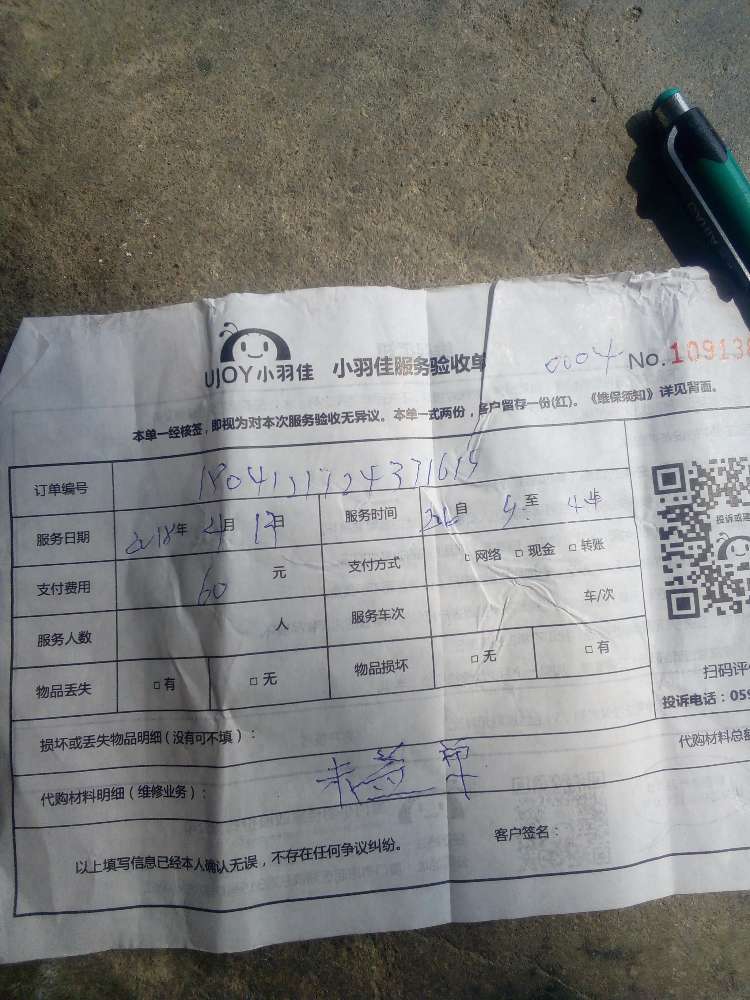 UJOY小羽佳 小羽佳服务验收单 0004 No.10913
本单一经核签，即视为对本次服务验收无异议。本单一式两份，客户留存一份(红)。《维保须知》详见背面。
订单编号
服务日期 2018年 4月 17日 服务时间 自 至
支付费用 60 元 支付方式 □网络 □现金 □转账
服务人数 人 服务车次 车/次
物品丢失 □有 □无 物品损坏 □无 □有
投诉或建
扫码评
投诉电话：059
损坏或丢失物品明细（没有可不填）：
代购材料明细（维修业务）： 未签单 代购材料总
以上填写信息已经本人确认无误，不存在任何争议纠纷。 客户签名：